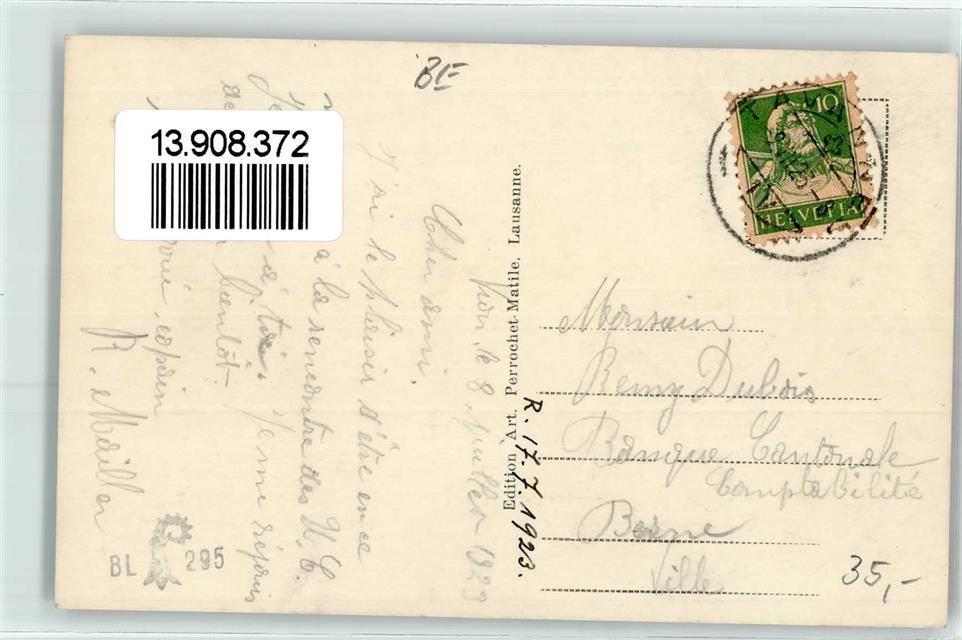 BE
13.908.372
Sion, le 8 juillet 1923
Cher ami.
J'ai le plaisir d'être en ce
à la rencontre des U. C.
à toi. Je me réjouis
bientôt.
copain
R. Mailler
BL 295
Edition Art. Perrochet-Matile, Lausanne.
R. 17.7.1923.
10
HELVETIA
Monsieur
Remy Dubois
Banque Cantonale
Comptabilité
Berne
Ville
35,-